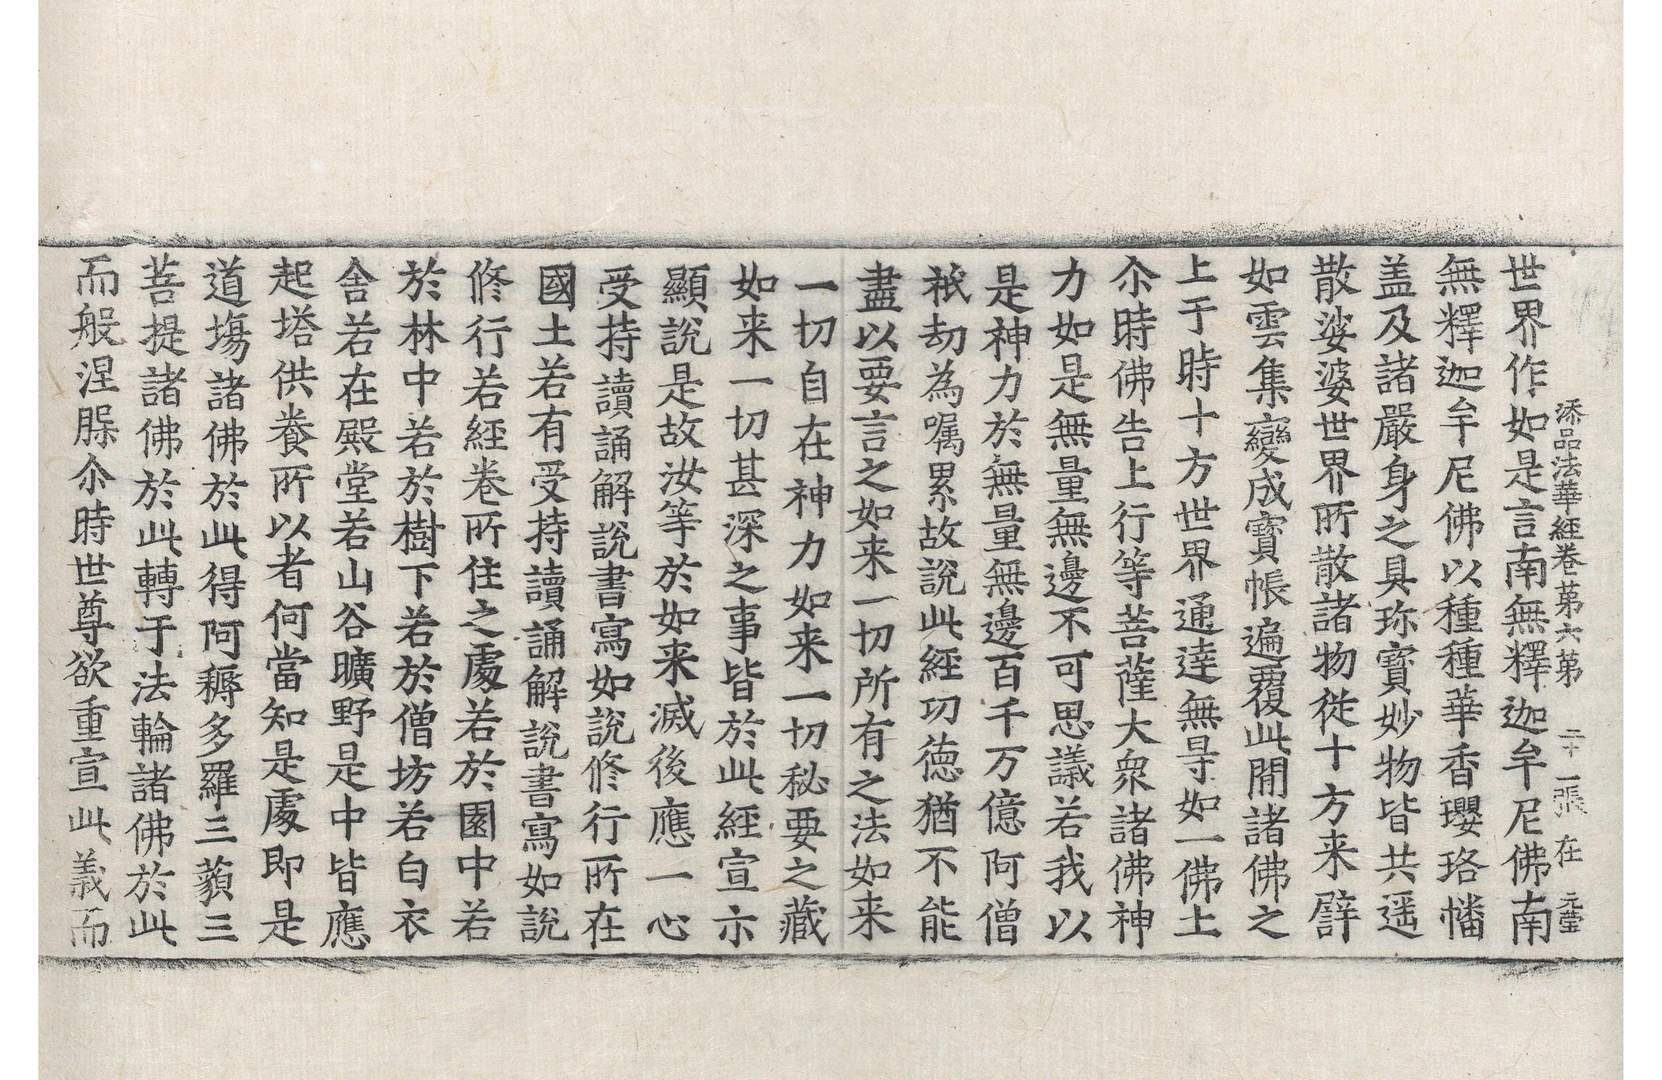 添品法華經卷苐六苐 二十一張 在 元瑩
世界作如是言南無釋迦牟尼佛南
無釋迦牟尼佛以種種華香瓔珞幡
盖及諸嚴身之具珎寶妙物皆共遥
散娑婆世界所散諸物從十方来譬
如雲集變成寶帳遍覆此閒諸佛之
上于時十方世界通達無㝵如一佛上
尒時佛告上行等菩薩大衆諸佛神
力如是無量無邊不可思議若我以
是神力於無量無邊百千万億阿僧
祇劫為嘱累故說此經功德猶不能
盡以要言之如来一切所有之法如来
一切自在神力如来一切秘要之藏
如来一切甚深之事皆於此經宣示
顯說是故汝等於如来滅後應一心
受持讀誦解說書寫如說修行所在
國土若有受持讀誦解說書寫如說
修行若經卷所住之處若於園中若
於林中若於樹下若於僧坊若白衣
舍若在殿堂若山谷曠野是中皆應
起塔供養所以者何當知是處即是
道塲諸佛於此得阿耨多羅三藐三
菩提諸佛於此轉于法輪諸佛於此
而般涅槃尒時世尊欲重宣此義而